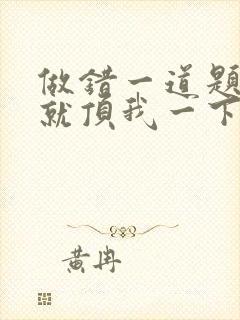 做錯一道題
就頂我一下
黃冉